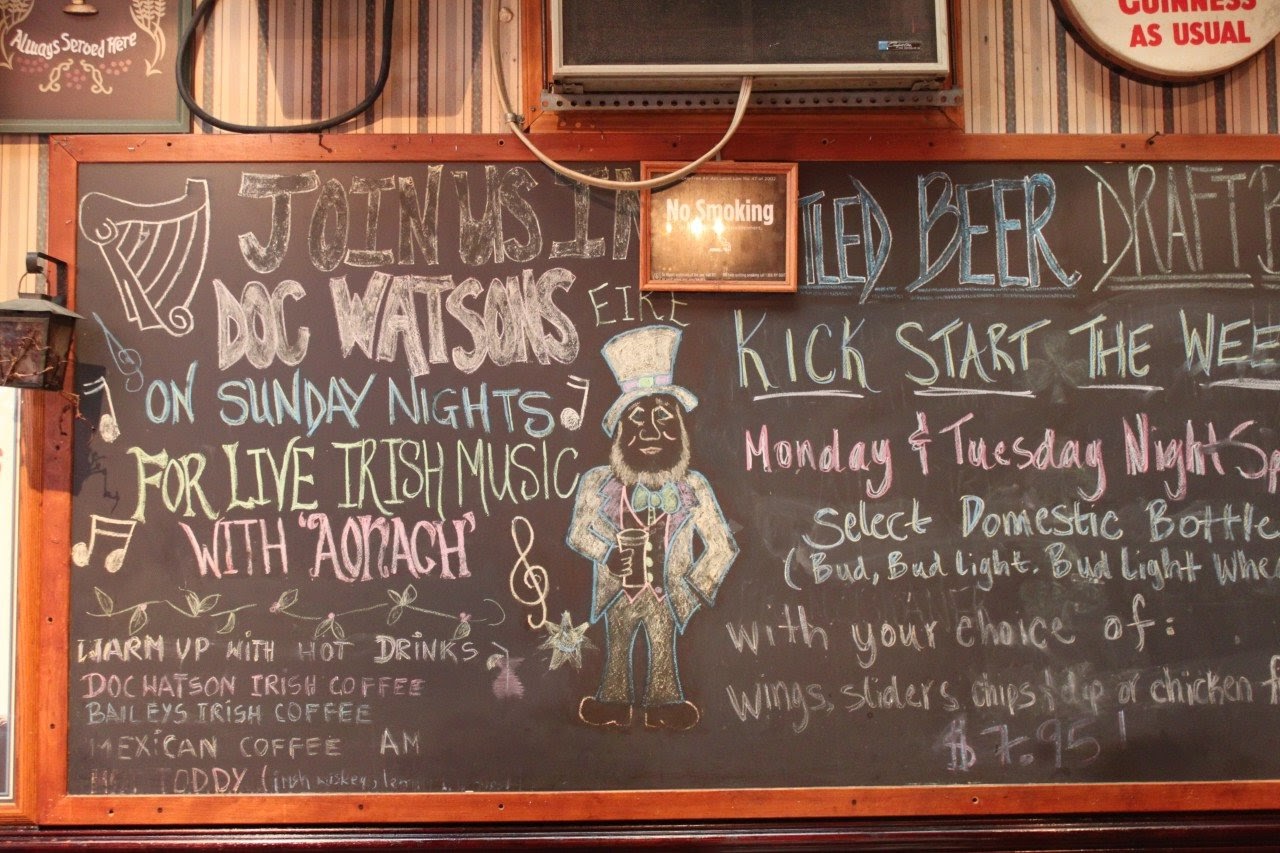 Always Served Here
GUINNESS
AS USUAL
No Smoking
JOIN US IN
DOC WATSONS
EIRE
ON SUNDAY NIGHTS
FOR LIVE IRISH MUSIC
WITH 'AONACH'
WARM UP WITH HOT DRINKS
DOC WATSON IRISH COFFEE
BAILEYS IRISH COFFEE
MEXICAN COFFEE AM
HOT TODDY (irish wiskey,
TLED BEER DRAFT B
KICK START THE WEE
Monday & Tuesday Night Sp
Select Domestic Bottle
(Bud, Bud Light. Bud Light Whe
with your choice of:
wings, sliders, chips & dip or chicken f
$7.95!